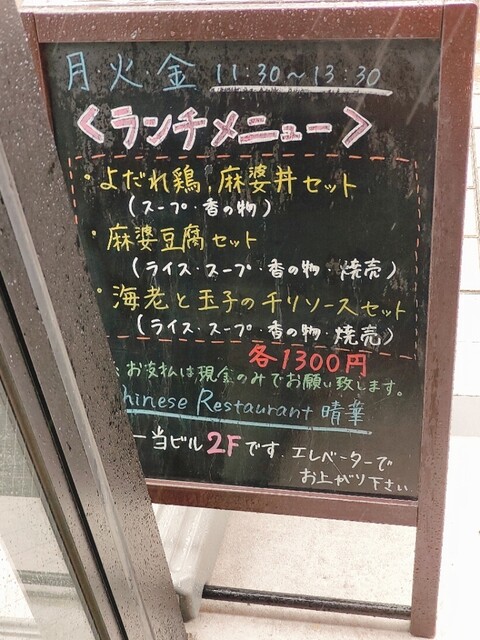 月・火・金 11:30～13:30
＜ランチメニュー＞
・よだれ鶏,麻婆丼セット
(スープ・香の物)
・麻婆豆腐セット
(ライス・スープ・香の物・焼売)
・海老と玉子のチリソースセット
(ライス・スープ・香の物・焼売)
各1300円
お支払は現金のみでお願い致します。
hinese Restaurant 晴華
当ビル2Fです.エレベーターで
お上がり下さい